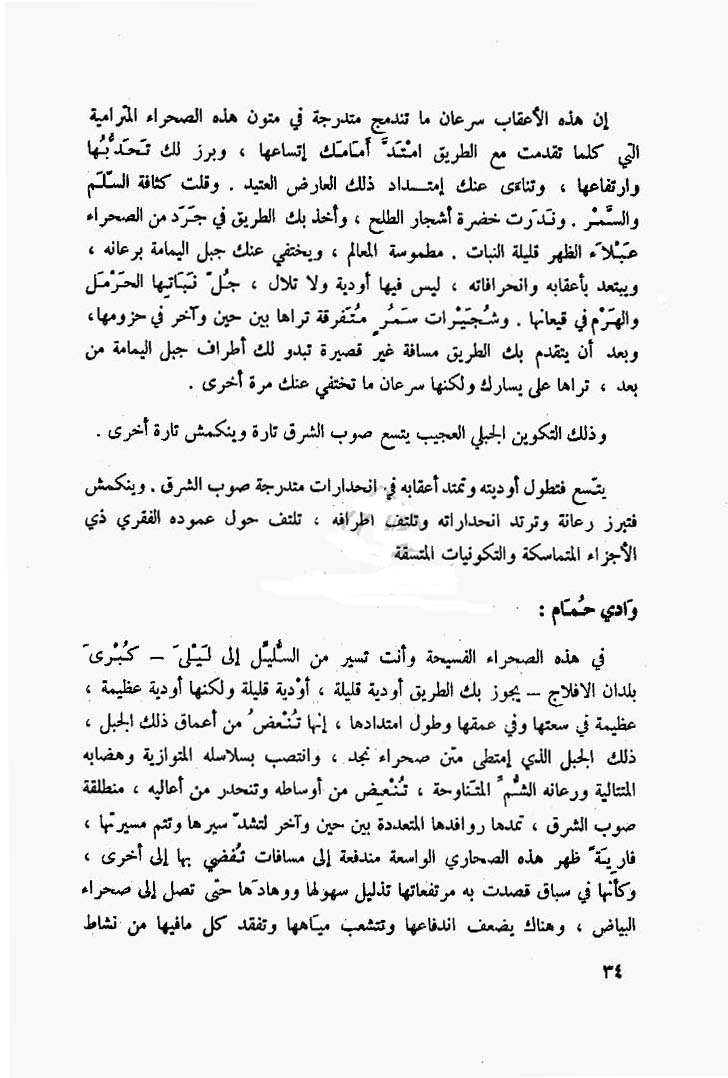 إن هذه الأعقاب سرعان ما تندمج متدرجة في متون هذه الصحراء المترامية
التي كلما تقدمت مع الطريق امْتَدَّ أَمَامَك إتساعها ، وبرز لك تَحَدُّبُها
وارتفاعها ، وتناءى عنك إمتـداد ذلك العارض العتيد . وقلت كثافة السَّلَم
والسَّمُر . ونَدَرت خضرة أشجار الطلح ، وأخذ بك الطريق في جَرَد من الصحراء
عَبْلاَء الظهر قليلة النبات . مطموسة المعالم ، ويختفي عنك جبل اليمامة برعانه ،
ويبتعد بأعقابه وانحرافاته ، ليس فيها أودية ولا تلال ، جُلّ نَبَاتِها الحَرْمَل
والهَرْم في قيعانها . وشُجَيْرات سَمُرٍ مُتَفرقة تراها بين حين وآخر في حزومها،
وبعد أن يتقدم بك الطريق مسافة غير قصيرة تبدو لك أطراف جبل اليمامة من
بعد ، تراها على يسارك ولكنها سرعان ما تختفي عنك مرة أخرى .
وذلك التكوين الجبلي العجيب يتسع صوب الشرق تارة وينكمش تارة أخرى .
يتّسع فتطول أوديته وتمتد أعقابه في انحدارات متدرجة صوب الشرق . وينكمش
فتبرز رعانة وترتد انحداراته وتلتف اطرافه ، تلتف حول عموده الفقري ذي
الأجزاء المتماسكة والتكونيات المتسقة
وَادي حُمَام :
في هذه الصحراء الفسيحة وأنت تسير من السُّلَيِّل إلى لَيْلَى – كُبْرَى
بلدان الافلاج – يجوز بك الطريق أودية قليلة ، أوْدية قليلة ولكنها أودية عظيمة ،
عظيمة في سعتها وفي عمقها وطول امتدادها ، إنها تَنْعضُ من أعماق ذلك الجبل ،
ذلك الجبل الذي إمتطى متن صحراء نجد ، وانتصب بسلاسله المتوازية وهضابه
المتتالية ورعانه الشُّمِّ المتَناوحة ، تَنْعِض من أوساطه وتنحدر من أعاليه ، منطلقة
صوب الشرق ، تمدها روافدها المتعددة بين حين وآخر لتشدّ سيرها وتتم مسيرتها ،
فاريَةً ظهر هذه الصحاري الواسعة مندفعة إلى مسافات تُفضي بها إلى أخرى ،
وكأنها في سباق قصدت به مرتفعاتها تذليل سهولها ووهادَها حتى تصل إلى صحراء
البياض ، وهناك يضعف اندفاعها وتتشعب ميَاهها وتفقد كل مافيها من نشاط
٣٤